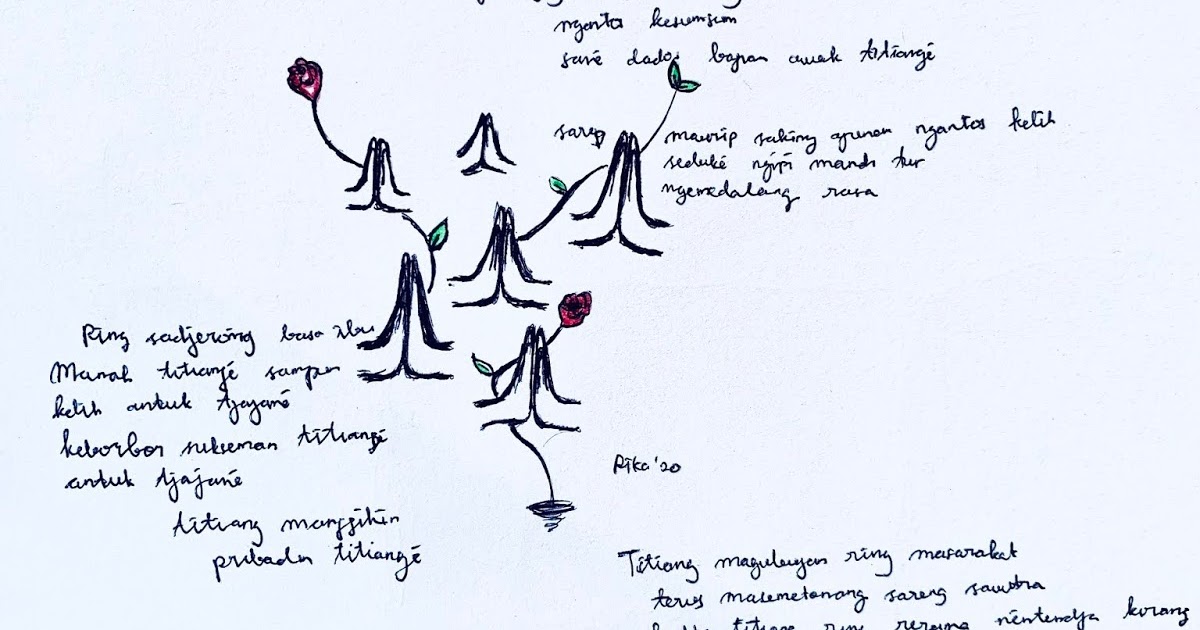 ngantos kesumsum
savé dados bapan awak titiangé
sareng maurip saking ayunan ngantos kelih
seduké ngipi mandi tur
ngemedalang rasa
Ring sadjeroning basa ibu
Manah titiangé sampun
kelih antuk tjajané
keborbor sukseman titiangé
antuk tjajané
titiang manggihin
pribadin titiangé
Rika '20
Titiang magulayan ring masarakat
terus masemetonang sareng sawitra
titiang ring nentendja korang